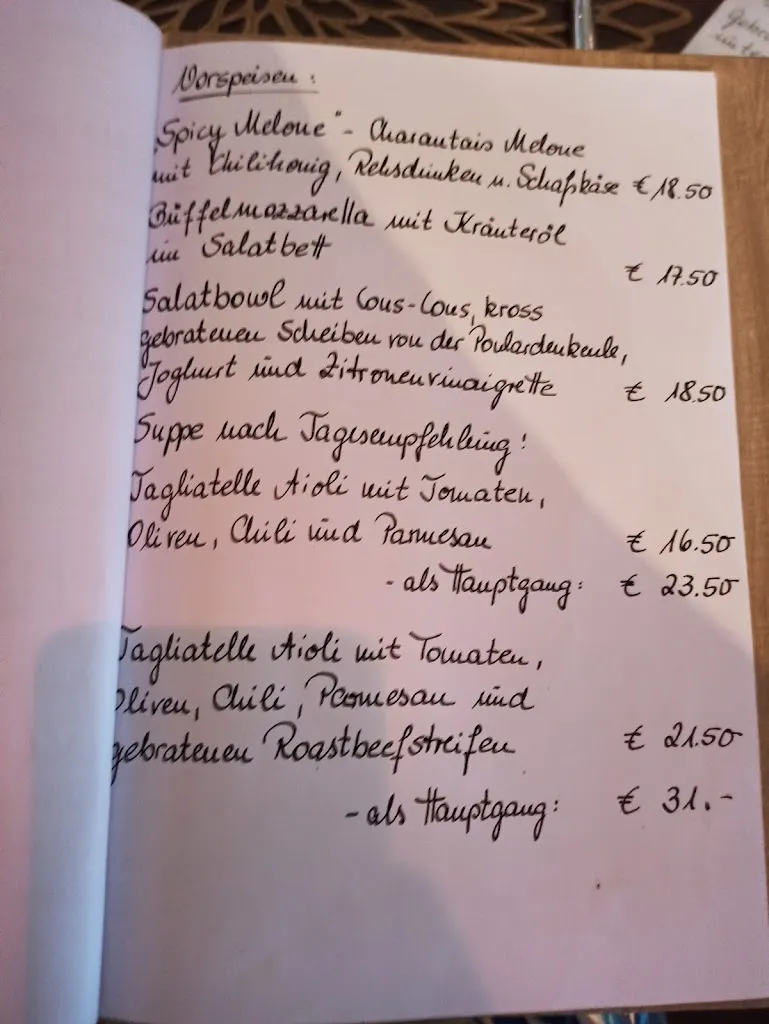 Vorspeisen:
„Spicy Melone" - Charantais Melone
mit Chilihonig, Rehschinken u. Schafskäse € 18.50
Büffelmozzarella mit Kräuteröl
im Salatbett
€ 17.50
Salatbowl mit Cous-Cous, kross
gebratenen Scheiben von der Poulardenkeule,
Joghurt und Zitronenvinaigrette € 18.50
Suppe nach Tagesempfehlung!
Tagliatelle Aioli mit Tomaten,
Oliven, Chili und Parmesan € 16.50
- als Hauptgang: € 23.50
Tagliatelle Aioli mit Tomaten,
Oliven, Chili, Parmesan und
gebratenen Roastbeefstreifen € 21.50
- als Hauptgang: € 31.-